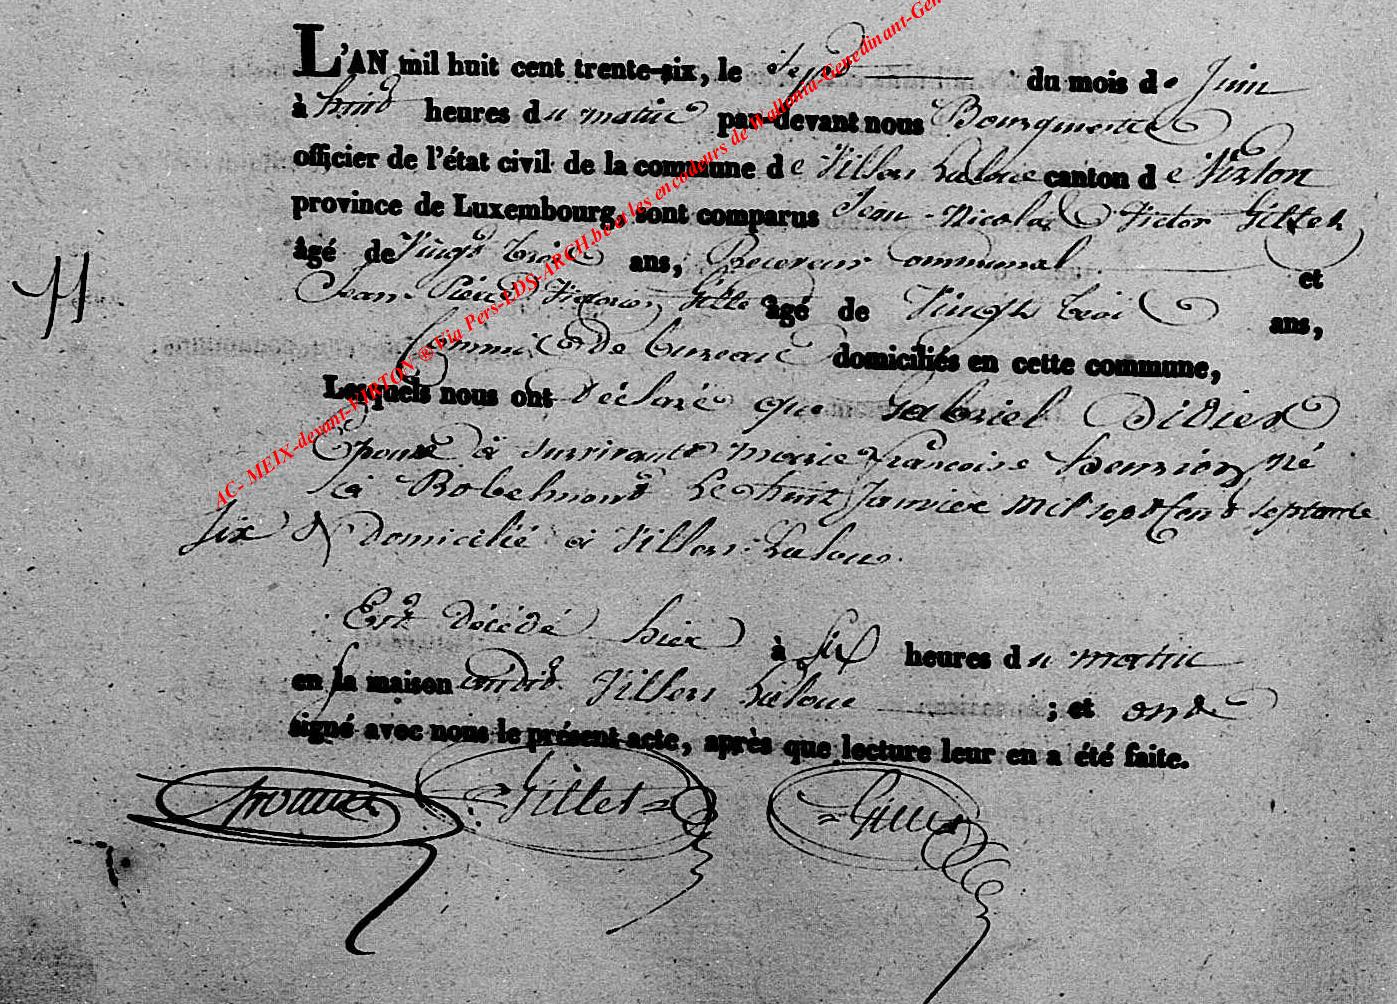 L'AN mil huit cent trente-six, le Sept du mois de Juin
à huit heures du matin par-devant nous
officier de l'état civil de la commune de Villers Laloue canton de Virton
province de Luxembourg, sont comparus Jean-Nicolas Victor Gillet
âgé de Vingt trois ans, Receveur Communal et
11
Jean-Pierre Gillet âgé de Vingt trois ans,
Commis de bureau domiciliés en cette commune,
Lesquels nous ont déclaré que Gabriel Didier
Epoux à survivante marie françoise henrion né
à Robelmont Le huit Janvier mil sept Cent septante
six & domicilié à Villers Laloue.
Est décédé hier à six heures du matin
en la maison audit Villers Laloue ; et ont
signé avec nous le présent acte, après que lecture leur en a été faite.
Gillet Gillet
AC- MEIX-devant-VIRTON ® Via Pers-LDS-ARCH.be et les encodeurs de Wallonia-Genedinant-Gen